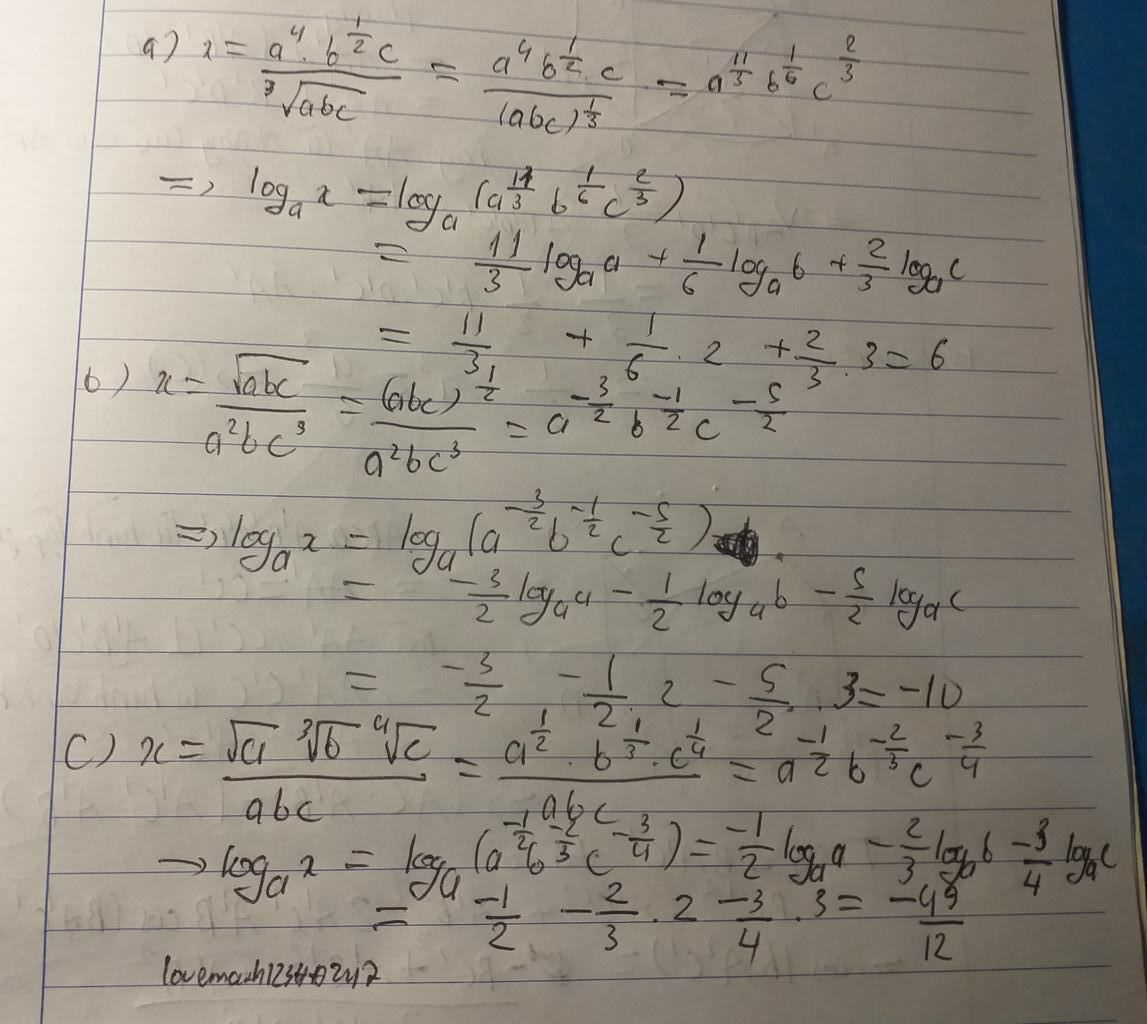 a) x = \frac{a^4 \cdot b^{\frac{1}{2}} c}{\sqrt[3]{abc}} = \frac{a^4 b^{\frac{1}{2}} \cdot c}{(abc)^{\frac{1}{3}}} = a^{\frac{11}{3}} b^{\frac{1}{6}} c^{\frac{2}{3}}
=> log_a x = log_a (a^{\frac{11}{3}} b^{\frac{1}{6}} c^{\frac{2}{3}})
= \frac{11}{3} log_a a + \frac{1}{6} log_a b + \frac{2}{3} log_a c
= \frac{11}{3} + \frac{1}{6} . 2 + \frac{2}{3} . 3 = 6
b) x = \frac{\sqrt{abc}}{a^2bc^3} = \frac{(abc)^{\frac{1}{2}}}{a^2bc^3} = a^{-\frac{3}{2}} b^{-\frac{1}{2}} c^{-\frac{5}{2}}
=> log_a x = log_a (a^{-\frac{3}{2}} b^{-\frac{1}{2}} c^{-\frac{5}{2}})
= -\frac{3}{2} log_a a - \frac{1}{2} log_a b - \frac{5}{2} log_a c
= -\frac{3}{2} - \frac{1}{2} . 2 - \frac{5}{2} . 3 = -10
c) x = \frac{\sqrt{a} \sqrt[3]{b} \sqrt[4]{c}}{abc} = \frac{a^{\frac{1}{2}} . b^{\frac{1}{3}} . c^{\frac{1}{4}}}{abc} = a^{-\frac{1}{2}} b^{-\frac{2}{3}} c^{-\frac{3}{4}}
→ log_a x = log_a (a^{-\frac{1}{2}} b^{-\frac{2}{3}} c^{-\frac{3}{4}}) = -\frac{1}{2} log_a a - \frac{2}{3} log_a b - \frac{3}{4} log_a c
= -\frac{1}{2} - \frac{2}{3} . 2 - \frac{3}{4} . 3 = -\frac{49}{12}